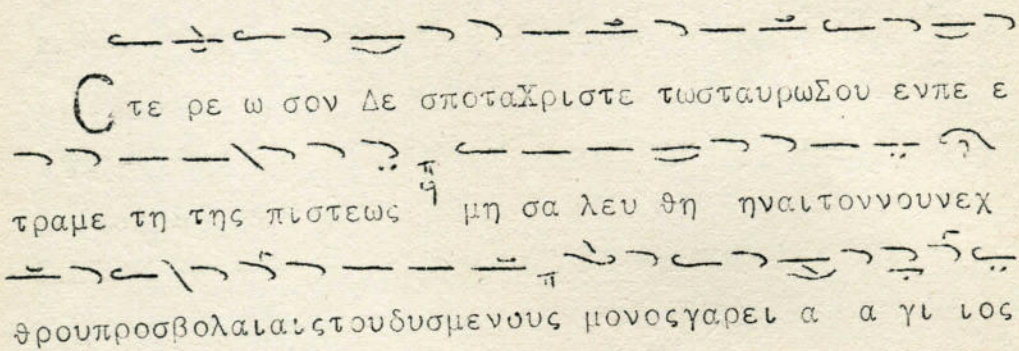 Cτε ρε ω σον Δε σποταΧριστε τωσταυρωΣου ενπε ε
τραμε τη της πιστεως μη σα λευ θη ηναιτοννουνεχ
θρουπροσβολαιαιςτουδυσμενουυς μονοςγαρει α α γι ιος